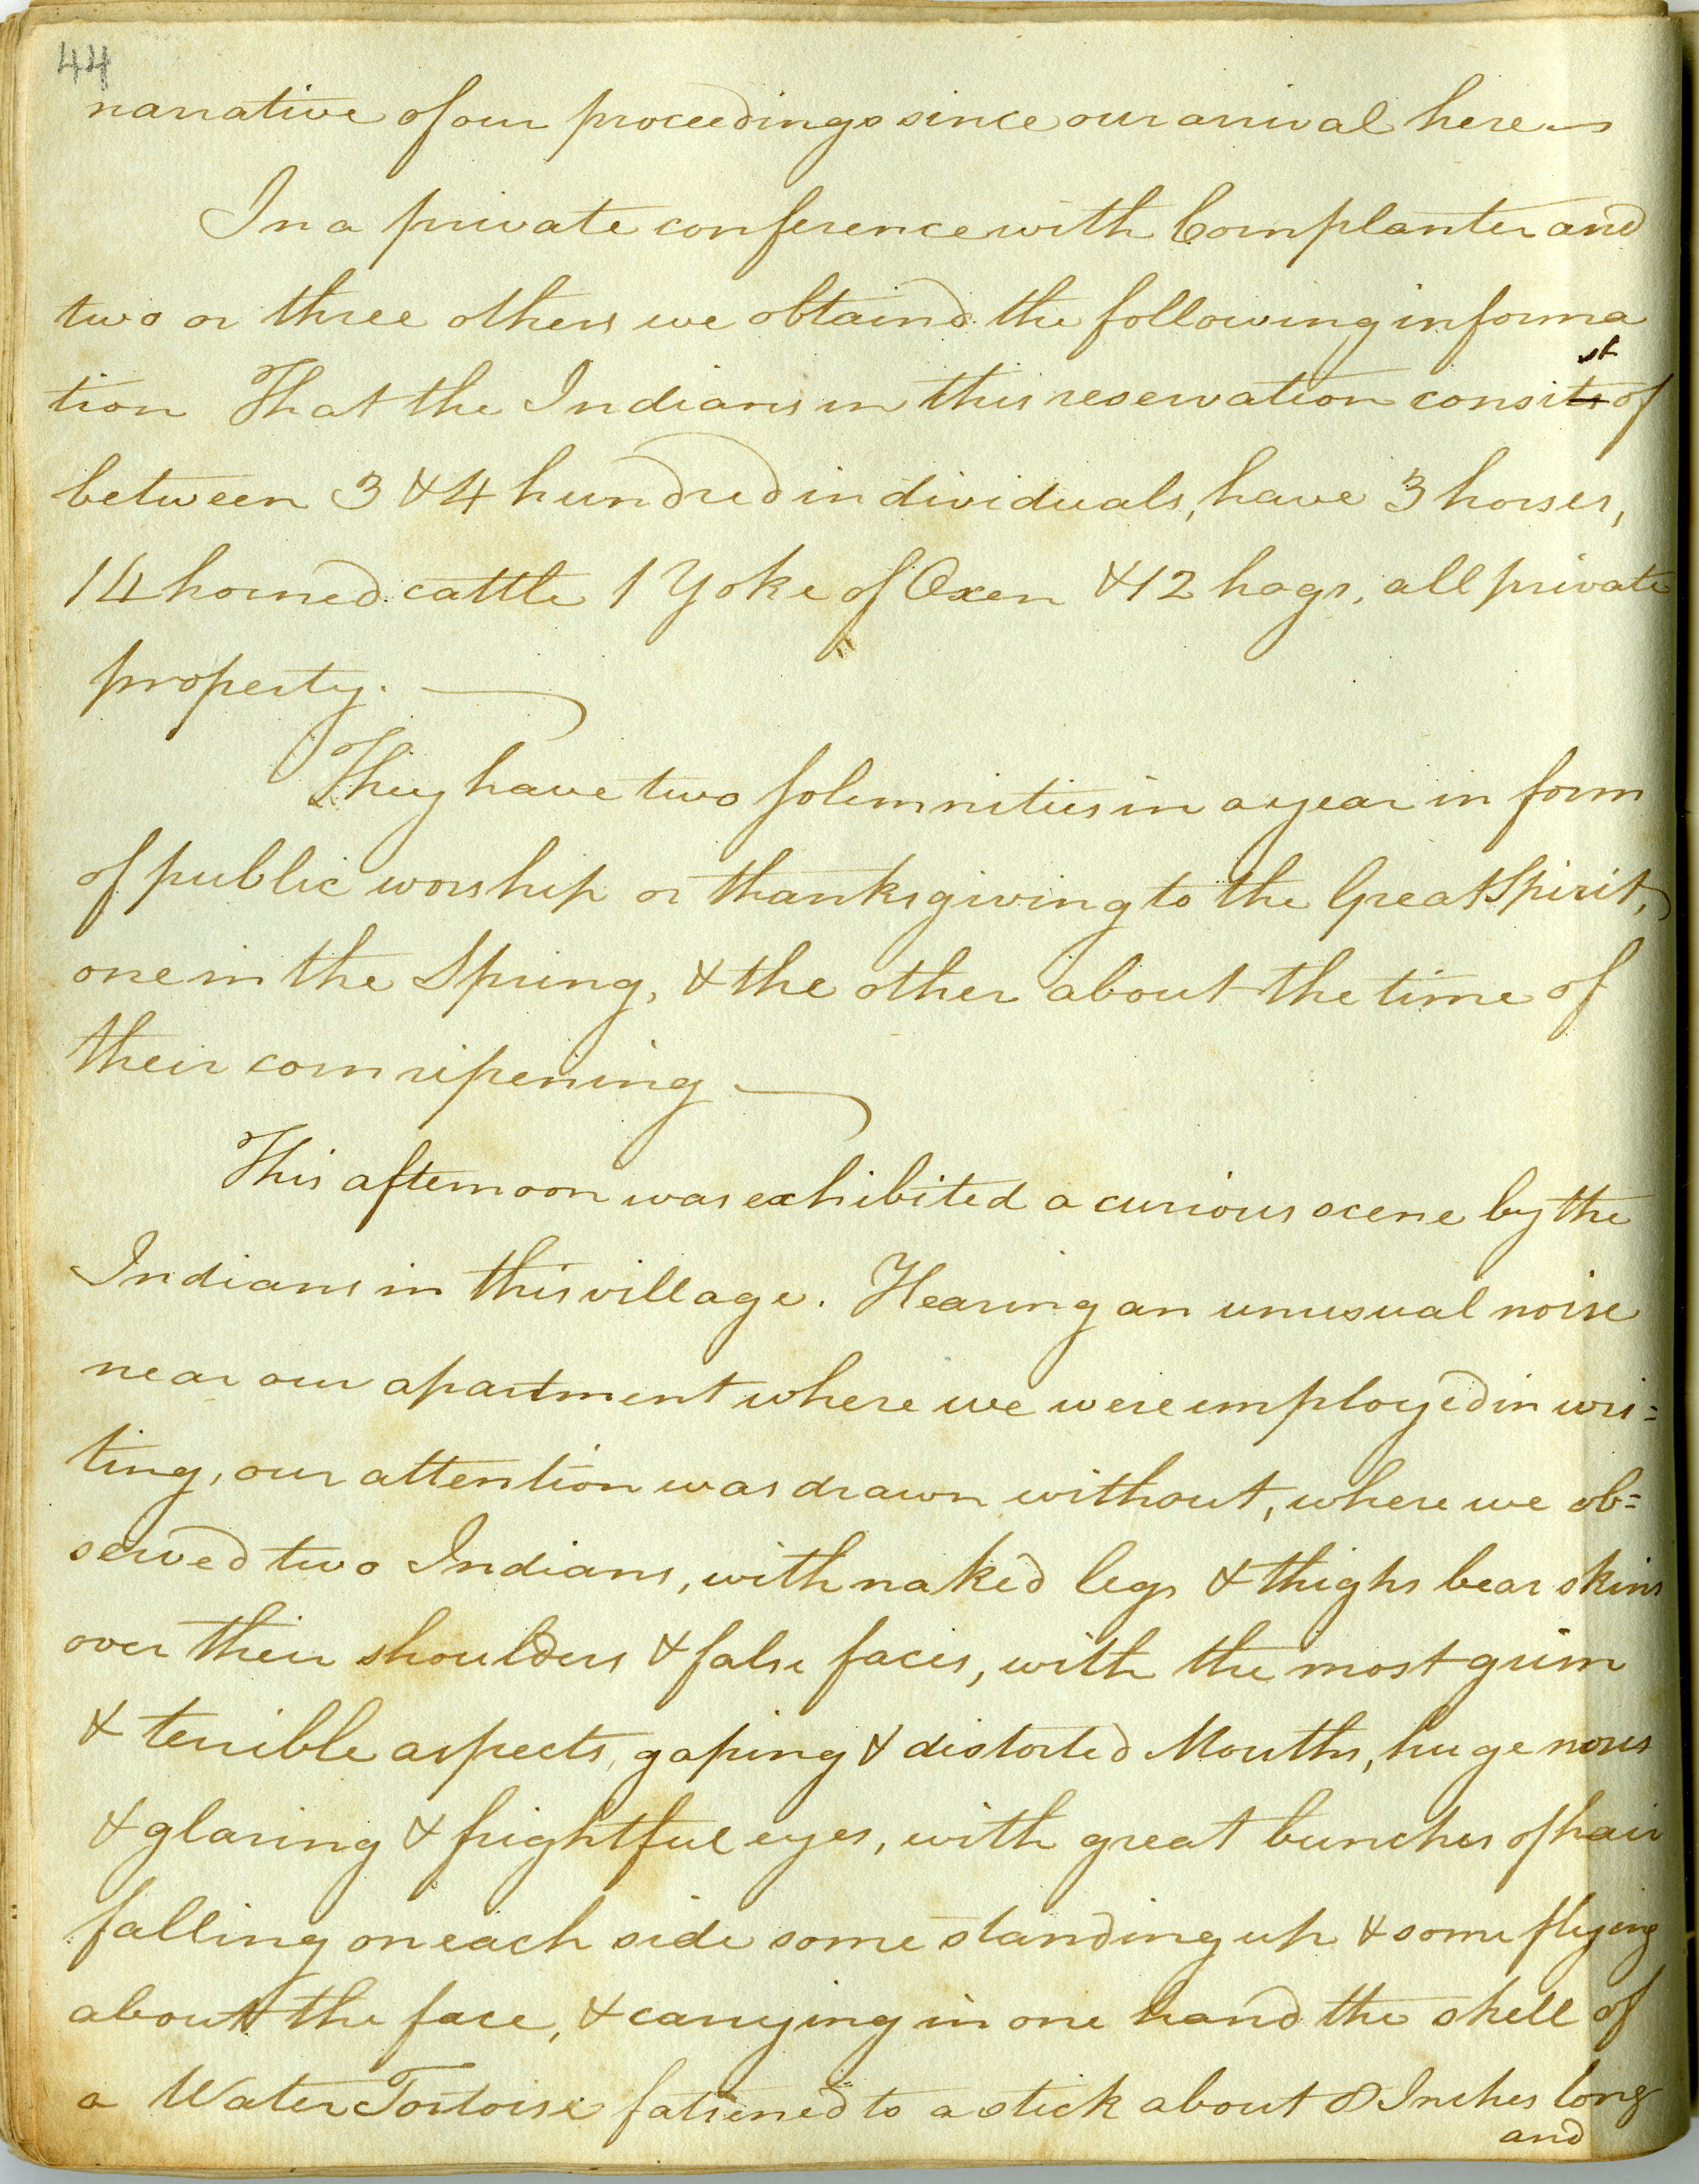 44
narrative of our proceedings since our arrival here
In a private conference with Cornplanter and
two or three others we obtaind the following informa
tion That the Indians in this reservation consits st of
between 3 & 4 hundred individuals, have 3 horses,
14 horned cattle 1 Yoke of Oxen & 12 hogs, all private
property.
They have two solemnities in a year in form
of public worship or thanksgiving to the Great Spirit,
one in the Spring, & the other about the time of
their corn ripening
This afternoon was exhibited a curious scene by the
Indians in this village. Hearing an unusual noise
near our apartment where we were employed in wri=
ting, our attention was drawn without, where we ob=
served two Indians, with naked legs & thighs bear skins
over their shoulders & false faces, with the most grim
& terrible aspects, gaping & distorted Mouths, huge noses
& glaring & frightful eyes, with great bunches of hair
falling on each side some standing up & some flying
about the face, & carrying in one hand the shell of
a Water Tortoise fatsened to a stick about 8 Inches long
and